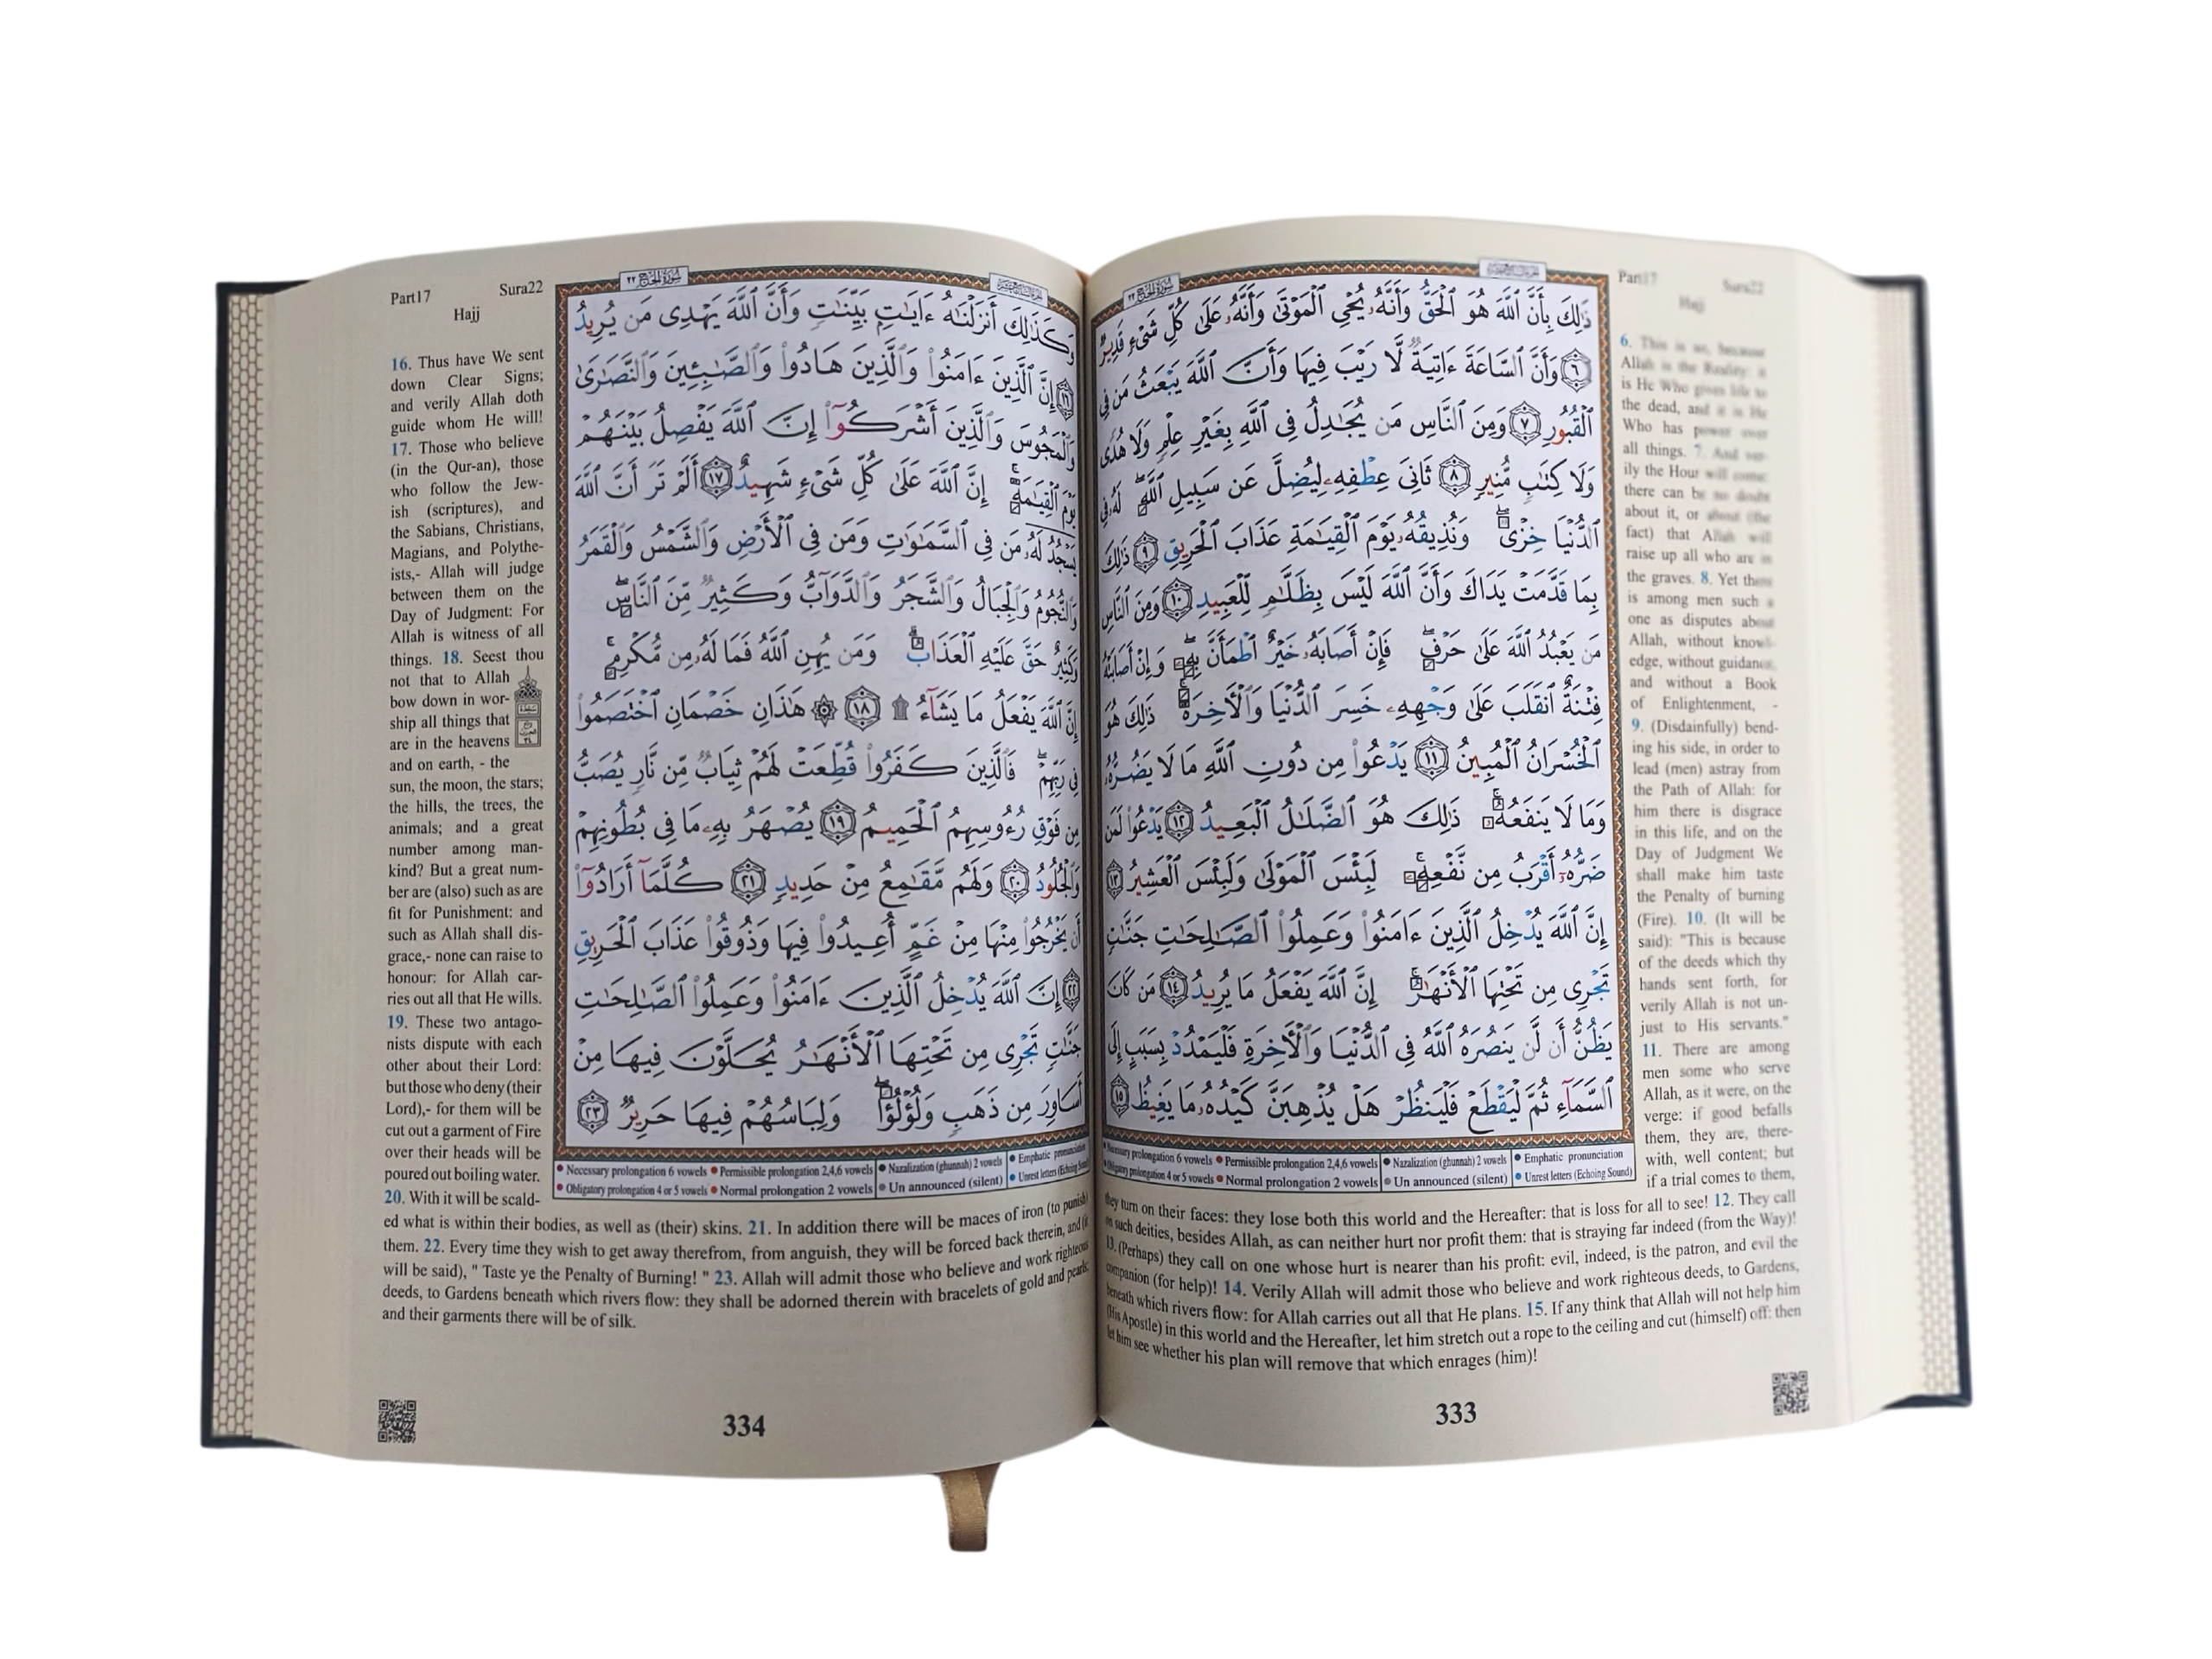 سورة الحج ٢٢
ذَٰلِكَ بِأَنَّ ٱللَّهَ هُوَ ٱلْحَقُّ وَأَنَّهُۥ يُحْىِ ٱلْمَوْتَىٰ وَأَنَّهُۥ عَلَىٰ كُلِّ شَىْءٍ قَدِيرٌ
٦ وَأَنَّ ٱلسَّاعَةَ ءَاتِيَةٌ لَّا رَيْبَ فِيهَا وَأَنَّ ٱللَّهَ يَبْعَثُ مَن فِى
ٱلْقُبُورِ ٧ وَمِنَ ٱلنَّاسِ مَن يُجَٰدِلُ فِى ٱللَّهِ بِغَيْرِ عِلْمٍ وَلَا هُدًى
وَلَا كِتَٰبٍ مُّنِيرٍ ٨ ثَانِىَ عِطْفِهِۦ لِيُضِلَّ عَن سَبِيلِ ٱللَّهِ لَهُۥ فِى
ٱلدُّنْيَا خِزْىٌ وَنُذِيقُهُۥ يَوْمَ ٱلْقِيَٰمَةِ عَذَابَ ٱلْحَرِيقِ ٩ ذَٰلِكَ
بِمَا قَدَّمَتْ يَدَاكَ وَأَنَّ ٱللَّهَ لَيْسَ بِظَلَّٰمٍ لِّلْعَبِيدِ ١٠ وَمِنَ ٱلنَّاسِ
مَن يَعْبُدُ ٱللَّهَ عَلَىٰ حَرْفٍ فَإِنْ أَصَابَهُۥ خَيْرٌ ٱطْمَأَنَّ بِهِۦ وَإِنْ أَصَابَتْهُ
فِتْنَةٌ ٱنقَلَبَ عَلَىٰ وَجْهِهِۦ خَسِرَ ٱلدُّنْيَا وَٱلْءَاخِرَةَ ذَٰلِكَ هُوَ
ٱلْخُسْرَانُ ٱلْمُبِينُ ١١ يَدْعُوا۟ مِن دُونِ ٱللَّهِ مَا لَا يَضُرُّهُۥ
وَمَا لَا يَنفَعُهُۥ ذَٰلِكَ هُوَ ٱلضَّلَٰلُ ٱلْبَعِيدُ ١٢ يَدْعُوا۟ لَمَن
ضَرُّهُۥٓ أَقْرَبُ مِن نَّفْعِهِۦ لَبِئْسَ ٱلْمَوْلَىٰ وَلَبِئْسَ ٱلْعَشِيرُ ١٣
إِنَّ ٱللَّهَ يُدْخِلُ ٱلَّذِينَ ءَامَنُوا۟ وَعَمِلُوا۟ ٱلصَّٰلِحَٰتِ جَنَّٰتٍ
تَجْرِى مِن تَحْتِهَا ٱلْأَنْهَٰرُ إِنَّ ٱللَّهَ يَفْعَلُ مَا يُرِيدُ ١٤ مَن كَانَ
يَظُنُّ أَن لَّن يَنصُرَهُ ٱللَّهُ فِى ٱلدُّنْيَا وَٱلْءَاخِرَةِ فَلْيَمْدُدْ بِسَبَبٍ إِلَى
ٱلسَّمَآءِ ثُمَّ لْيَقْطَعْ فَلْيَنظُرْ هَلْ يُذْهِبَنَّ كَيْدُهُۥ مَا يَغِيظُ ١٥
Necessary prolongation 6 vowels Permissible prolongation 2,4,6 vowels Nazalization (ghunnah) 2 vowels Emphatic pronunciation
Obligatory prolongation 4 or 5 vowels Normal prolongation 2 vowels Un announced (silent) Unrest letters (Echoing Sound)
Part17 Sura22
Hajj
6. This is so, because
Allah is the Reality: it
is He Who gives life to
the dead, and it is He
Who has power over
all things. 7. And ver-
ily the Hour will come:
there can be no doubt
about it, or about (the
fact) that Allah will
raise up all who are in
the graves. 8. Yet there
is among men such a
one as disputes about
Allah, without knowl-
edge, without guidance,
and without a Book
of Enlightenment, -
9. (Disdainfully) bend-
ing his side, in order to
lead (men) astray from
the Path of Allah: for
him there is disgrace
in this life, and on the
Day of Judgment We
shall make him taste
the Penalty of burning
(Fire). 10. (It will be
said): "This is because
of the deeds which thy
hands sent forth, for
verily Allah is not un-
just to His servants."
11. There are among
men some who serve
Allah, as it were, on the
verge: if good befalls
them, they are, there-
with, well content; but
if a trial comes to them,
they turn on their faces: they lose both this world and the Hereafter: that is loss for all to see! 12. They call
on such deities, besides Allah, as can neither hurt nor profit them: that is straying far indeed (from the Way)!
13. (Perhaps) they call on one whose hurt is nearer than his profit: evil, indeed, is the patron, and evil the
companion (for help)! 14. Verily Allah will admit those who believe and work righteous deeds, to Gardens,
beneath which rivers flow: for Allah carries out all that He plans. 15. If any think that Allah will not help him
(His Apostle) in this world and the Hereafter, let him stretch out a rope to the ceiling and cut (himself) off: then
let him see whether his plan will remove that which enrages (him)!
333
سورة الحج ٢٢
وَكَذَٰلِكَ أَنزَلْنَٰهُ ءَايَٰتٍۭ بَيِّنَٰتٍ وَأَنَّ ٱللَّهَ يَهْدِى مَن يُرِيدُ
١٦ إِنَّ ٱلَّذِينَ ءَامَنُوا۟ وَٱلَّذِينَ هَادُوا۟ وَٱلصَّٰبِـِٔينَ وَٱلنَّصَٰرَىٰ
وَٱلْمَجُوسَ وَٱلَّذِينَ أَشْرَكُوٓا۟ إِنَّ ٱللَّهَ يَفْصِلُ بَيْنَهُمْ
يَوْمَ ٱلْقِيَٰمَةِ إِنَّ ٱللَّهَ عَلَىٰ كُلِّ شَىْءٍ شَهِيدٌ ١٧ أَلَمْ تَرَ أَنَّ ٱللَّهَ
يَسْجُدُ لَهُۥ مَن فِى ٱلسَّمَٰوَٰتِ وَمَن فِى ٱلْأَرْضِ وَٱلشَّمْسُ وَٱلْقَمَرُ
وَٱلنُّجُومُ وَٱلْجِبَالُ وَٱلشَّجَرُ وَٱلدَّوَآبُّ وَكَثِيرٌ مِّنَ ٱلنَّاسِ
وَكَثِيرٌ حَقَّ عَلَيْهِ ٱلْعَذَابُ وَمَن يُهِنِ ٱللَّهُ فَمَا لَهُۥ مِن مُّكْرِمٍ
إِنَّ ٱللَّهَ يَفْعَلُ مَا يَشَآءُ ۩ ١٨ ۞ هَٰذَانِ خَصْمَانِ ٱخْتَصَمُوا۟
فِى رَبِّهِمْ فَٱلَّذِينَ كَفَرُوا۟ قُطِّعَتْ لَهُمْ ثِيَابٌ مِّن نَّارٍ يُصَبُّ
مِن فَوْقِ رُءُوسِهِمُ ٱلْحَمِيمُ ١٩ يُصْهَرُ بِهِۦ مَا فِى بُطُونِهِمْ
وَٱلْجُلُودُ ٢٠ وَلَهُم مَّقَٰمِعُ مِنْ حَدِيدٍ ٢١ كُلَّمَآ أَرَادُوٓا۟
أَن يَخْرُجُوا۟ مِنْهَا مِنْ غَمٍّ أُعِيدُوا۟ فِيهَا وَذُوقُوا۟ عَذَابَ ٱلْحَرِيقِ
٢٢ إِنَّ ٱللَّهَ يُدْخِلُ ٱلَّذِينَ ءَامَنُوا۟ وَعَمِلُوا۟ ٱلصَّٰلِحَٰتِ
جَنَّٰتٍ تَجْرِى مِن تَحْتِهَا ٱلْأَنْهَٰرُ يُحَلَّوْنَ فِيهَا مِنْ
أَسَاوِرَ مِن ذَهَبٍ وَلُؤْلُؤًا وَلِبَاسُهُمْ فِيهَا حَرِيرٌ ٢٣
Necessary prolongation 6 vowels Permissible prolongation 2,4,6 vowels Nazalization (ghunnah) 2 vowels Emphatic pronunciation
Obligatory prolongation 4 or 5 vowels Normal prolongation 2 vowels Un announced (silent) Unrest letters (Echoing Sound
Part17 Sura22
Hajj
16. Thus have We sent
down Clear Signs;
and verily Allah doth
guide whom He will!
17. Those who believe
(in the Qur-an), those
who follow the Jew-
ish (scriptures), and
the Sabians, Christians,
Magians, and Polythe-
ists,- Allah will judge
between them on the
Day of Judgment: For
Allah is witness of all
things. 18. Seest thou
not that to Allah
bow down in wor-
ship all things that
are in the heavens
and on earth, - the
sun, the moon, the stars;
the hills, the trees, the
animals; and a great
number among man-
kind? But a great num-
ber are (also) such as are
fit for Punishment: and
such as Allah shall dis-
grace,- none can raise to
honour: for Allah car-
ries out all that He wills.
19. These two antago-
nists dispute with each
other about their Lord:
but those who deny (their
Lord),- for them will be
cut out a garment of Fire
over their heads will be
poured out boiling water.
20. With it will be scald-
ed what is within their bodies, as well as (their) skins. 21. In addition there will be maces of iron (to punish)
them. 22. Every time they wish to get away therefrom, from anguish, they will be forced back therein, and (it
will be said), " Taste ye the Penalty of Burning! " 23. Allah will admit those who believe and work righteous
deeds, to Gardens beneath which rivers flow: they shall be adorned therein with bracelets of gold and pearls;
and their garments there will be of silk.
334